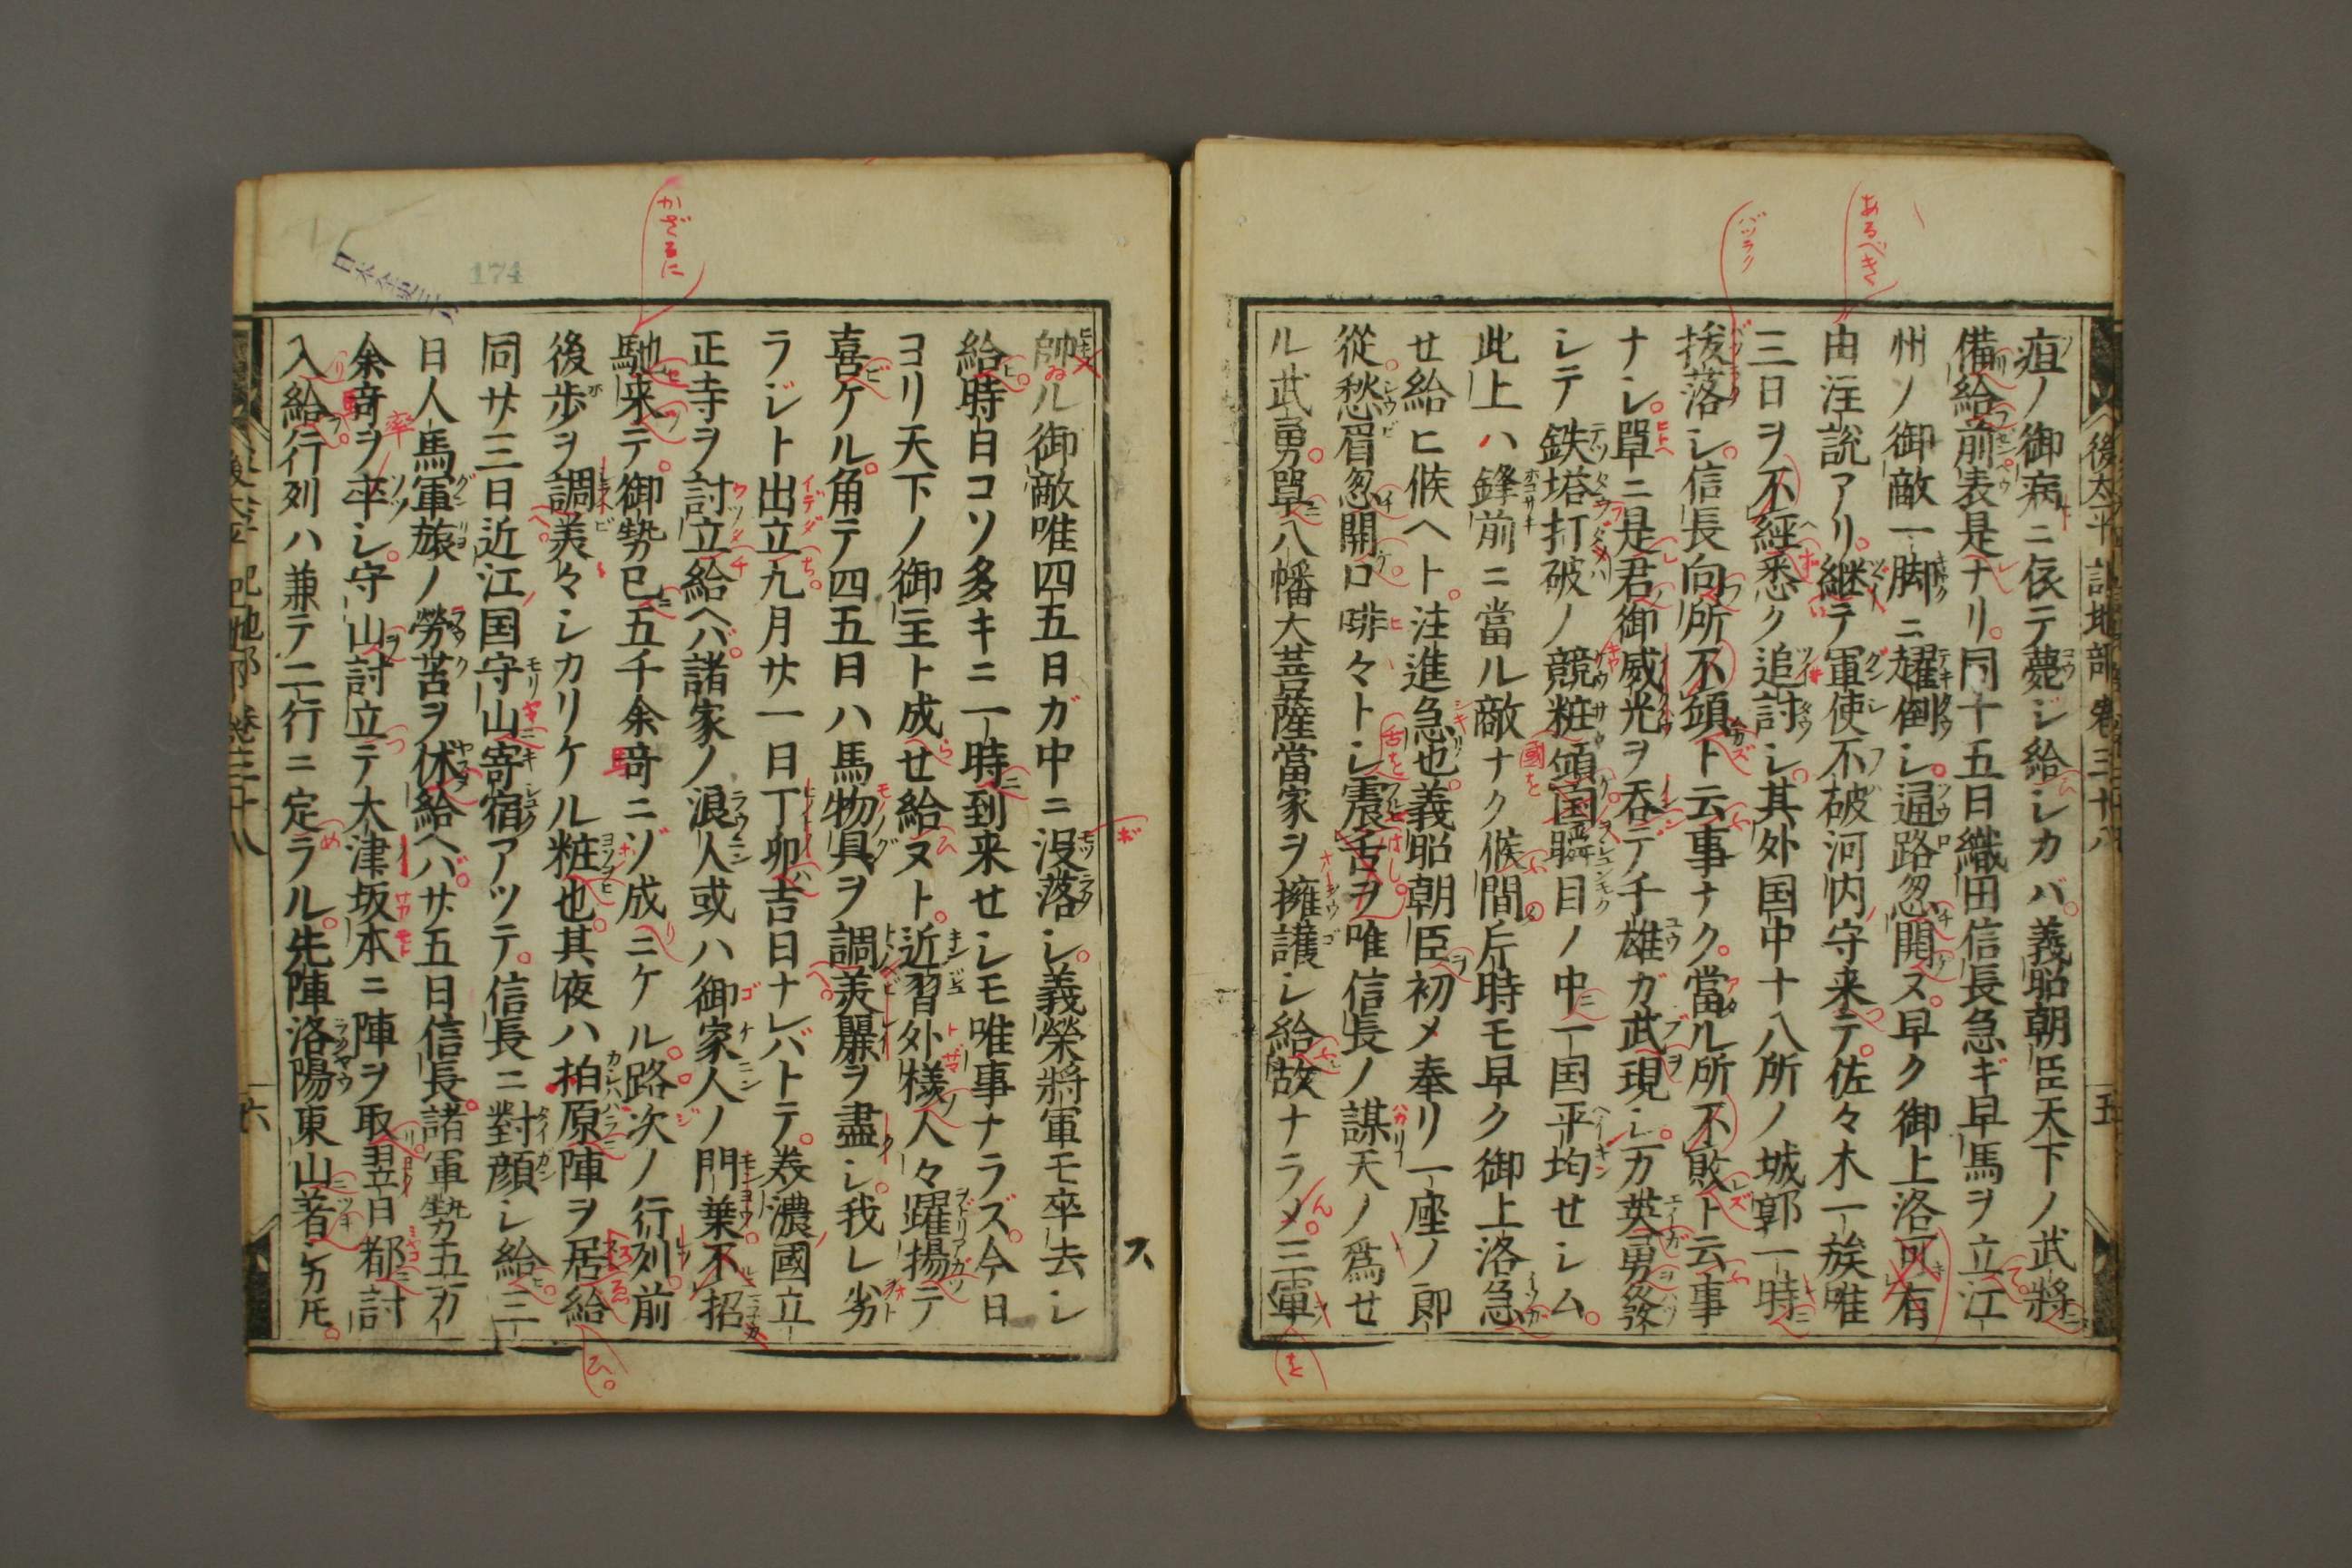 疽ノ御病ニ依テ薨ジ給シカバ。義昭朝臣天下ノ武將
備給前表是ナリ。同十五日織田信長急ギ早馬ヲ立江
州ノ御敵一脚ニ耀倒シ。通路忽開ヌ。早ク御上洛可有
由注説アリ。継テ軍使不破河内守来テ。佐々木一族唯
三日ヲ不經悉ク追討シ。其外国中十八所ノ城郭一時
拔落シ。信長向所不傾ト云事ナク。當ル所不敗ト云事
ナシ。單ニ是君御威光ヲ呑デ千雄ガ武現シ。万英勇發
シテ鉄塔打破ノ競粧頌国瞬目ノ中一国平均せシム。
此上ハ鋒前ニ當ル敵ナク候間斤時モ早ク御上洛急
せ給ヒ候ヘト。注進急也。義昭朝臣初メ奉リ一座ノ即
從。愁眉忽開口啡々トシ震舌ヲ唯信長ノ謀天ノ爲せ
ル武勇。單八幡大菩薩當家ヲ擁護シ給故ナラメ。三軍
後太平記地部 巻三十八
五
帥ル御敵唯四五日ガ中ニ没落シ。義榮將軍モ卒去シ
給。時日コソ多キニ一時到来せシモ唯事ナラズ。今日
ヨリ天下ノ御主ト成せ給ヌト。近習外樣人々躍揚テ
喜ケル。角テ四五日ハ馬物具ヲ調美麗ヲ盡シ。我レ劣
ラジト出立九月廿一日丁卯吉日ナレバトテ。美濃國立
正寺ヲ討立給ヘバ。諸家ノ浪人或ハ御家人ノ門葉不招
馳来テ。御勢已五千余竒ニゾ成ニケル。路次ノ行列。前
後歩ヲ調美々シカリケル粧也。其夜ハ柏原陣ヲ居給
同廿三日近江国守山寄宿アツテ。信長ニ對顔シ給三
日人馬軍旅ノ勞苦ヲ休給ヘバ。廿五日信長。諸軍勢五万
余竒ヲ卒シ。守山討立テ大津坂本ニ陣ヲ取翌日都討
入給。行列ハ兼テ二行ニ定ラル。先陣洛陽東山著シカ𪜈。
六
174
かざるに
バツラク
あるべき